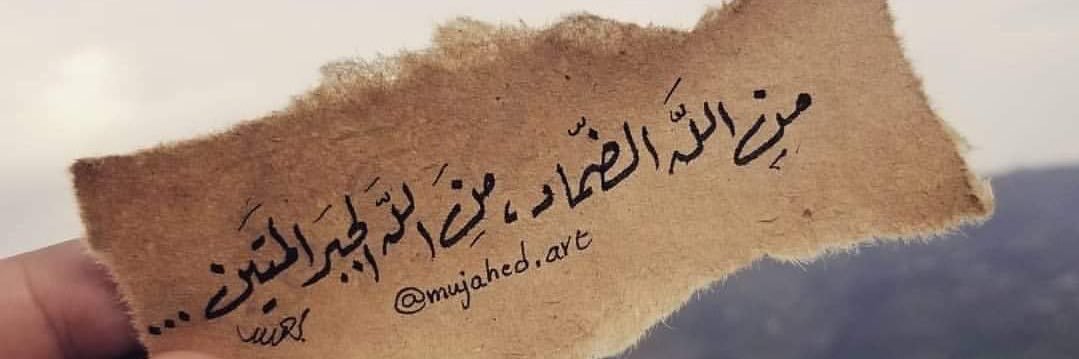 مِن اللَّه الضمّاد، مِنَ اللَّه الجبَر المتَين...
@mujahed.art